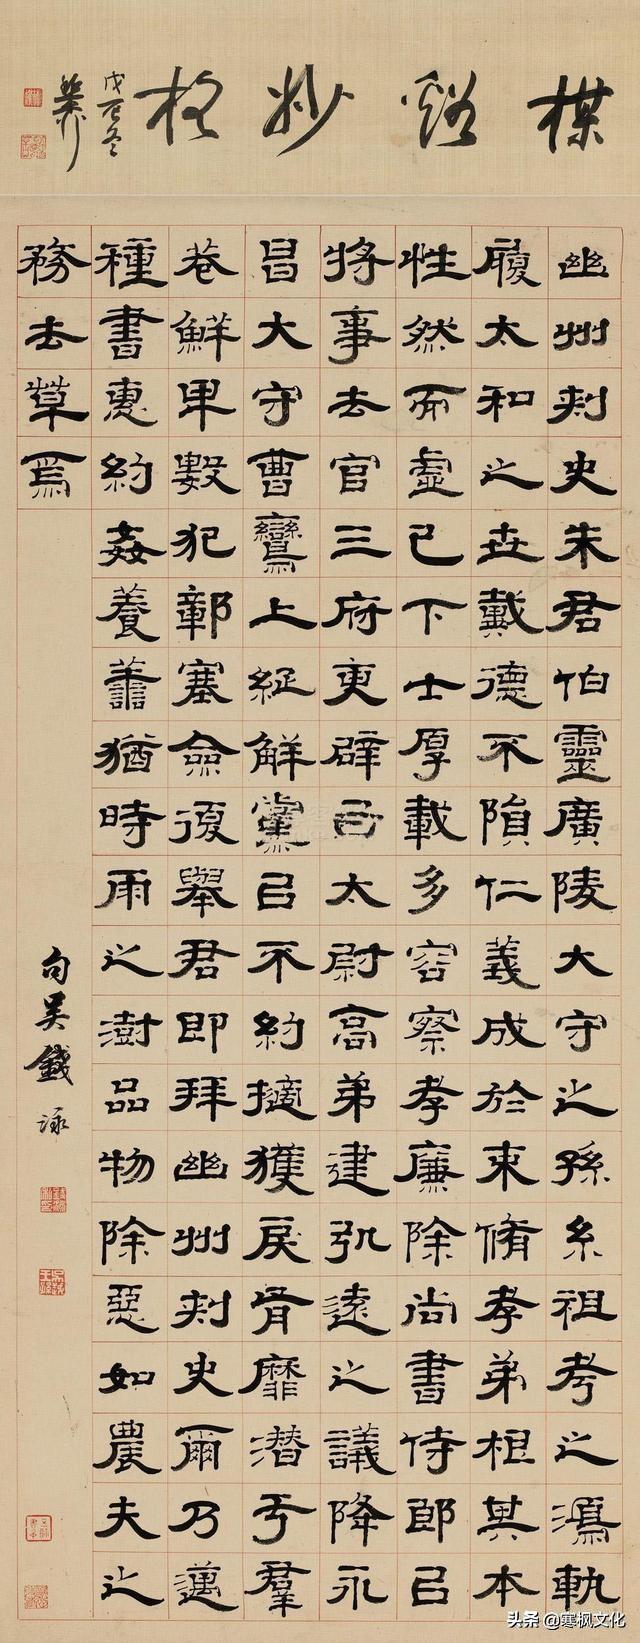 楳谿妙格
幽州刾史朱君伯靈廣陵大守之孫糸祖考之鴻軌
履太和之世戴德不隕仁義成於束脩孝弟根其本
性然而虛己下士厚載多容察孝廉除尚書侍郎㠯
將事去官三府更辟㠯太尉高弟建弘遠之議降永
昌大守曹鸞上緃解黨㠯不約擿獲戾骨靡潛于羣
巷鮮卑數犯鄣塞僉復舉君即拜幽州刾史爾乃邁
種書惠約姦養善猶時雨之澍品物除惡如農夫之
務去草焉
句吳錢泳
头条 @寒枫文化